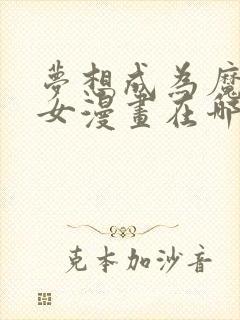 夢想成為魔
女漫畫在哪
克本加沙音